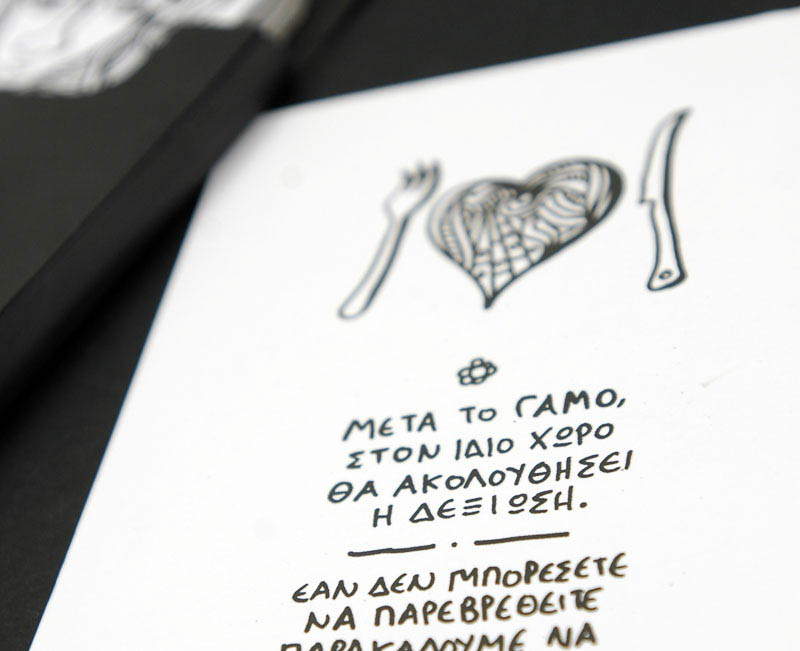 ΜΕΤΑ ΤΟ ΓΑΜΟ,
ΣΤΟΝ ΙΔΙΟ ΧΩΡΟ
ΘΑ ΑΚΟΛΟΥΘΗΣΕΙ
Η ΔΕΞΙΩΣΗ.
ΕΑΝ ΔΕΝ ΜΠΟΡΕΣΕΤΕ
ΝΑ ΠΑΡΕΒΡΕΘΕΙΤΕ
ΠΑΡΑΚΑΛΟΥΜΕ ΝΑ